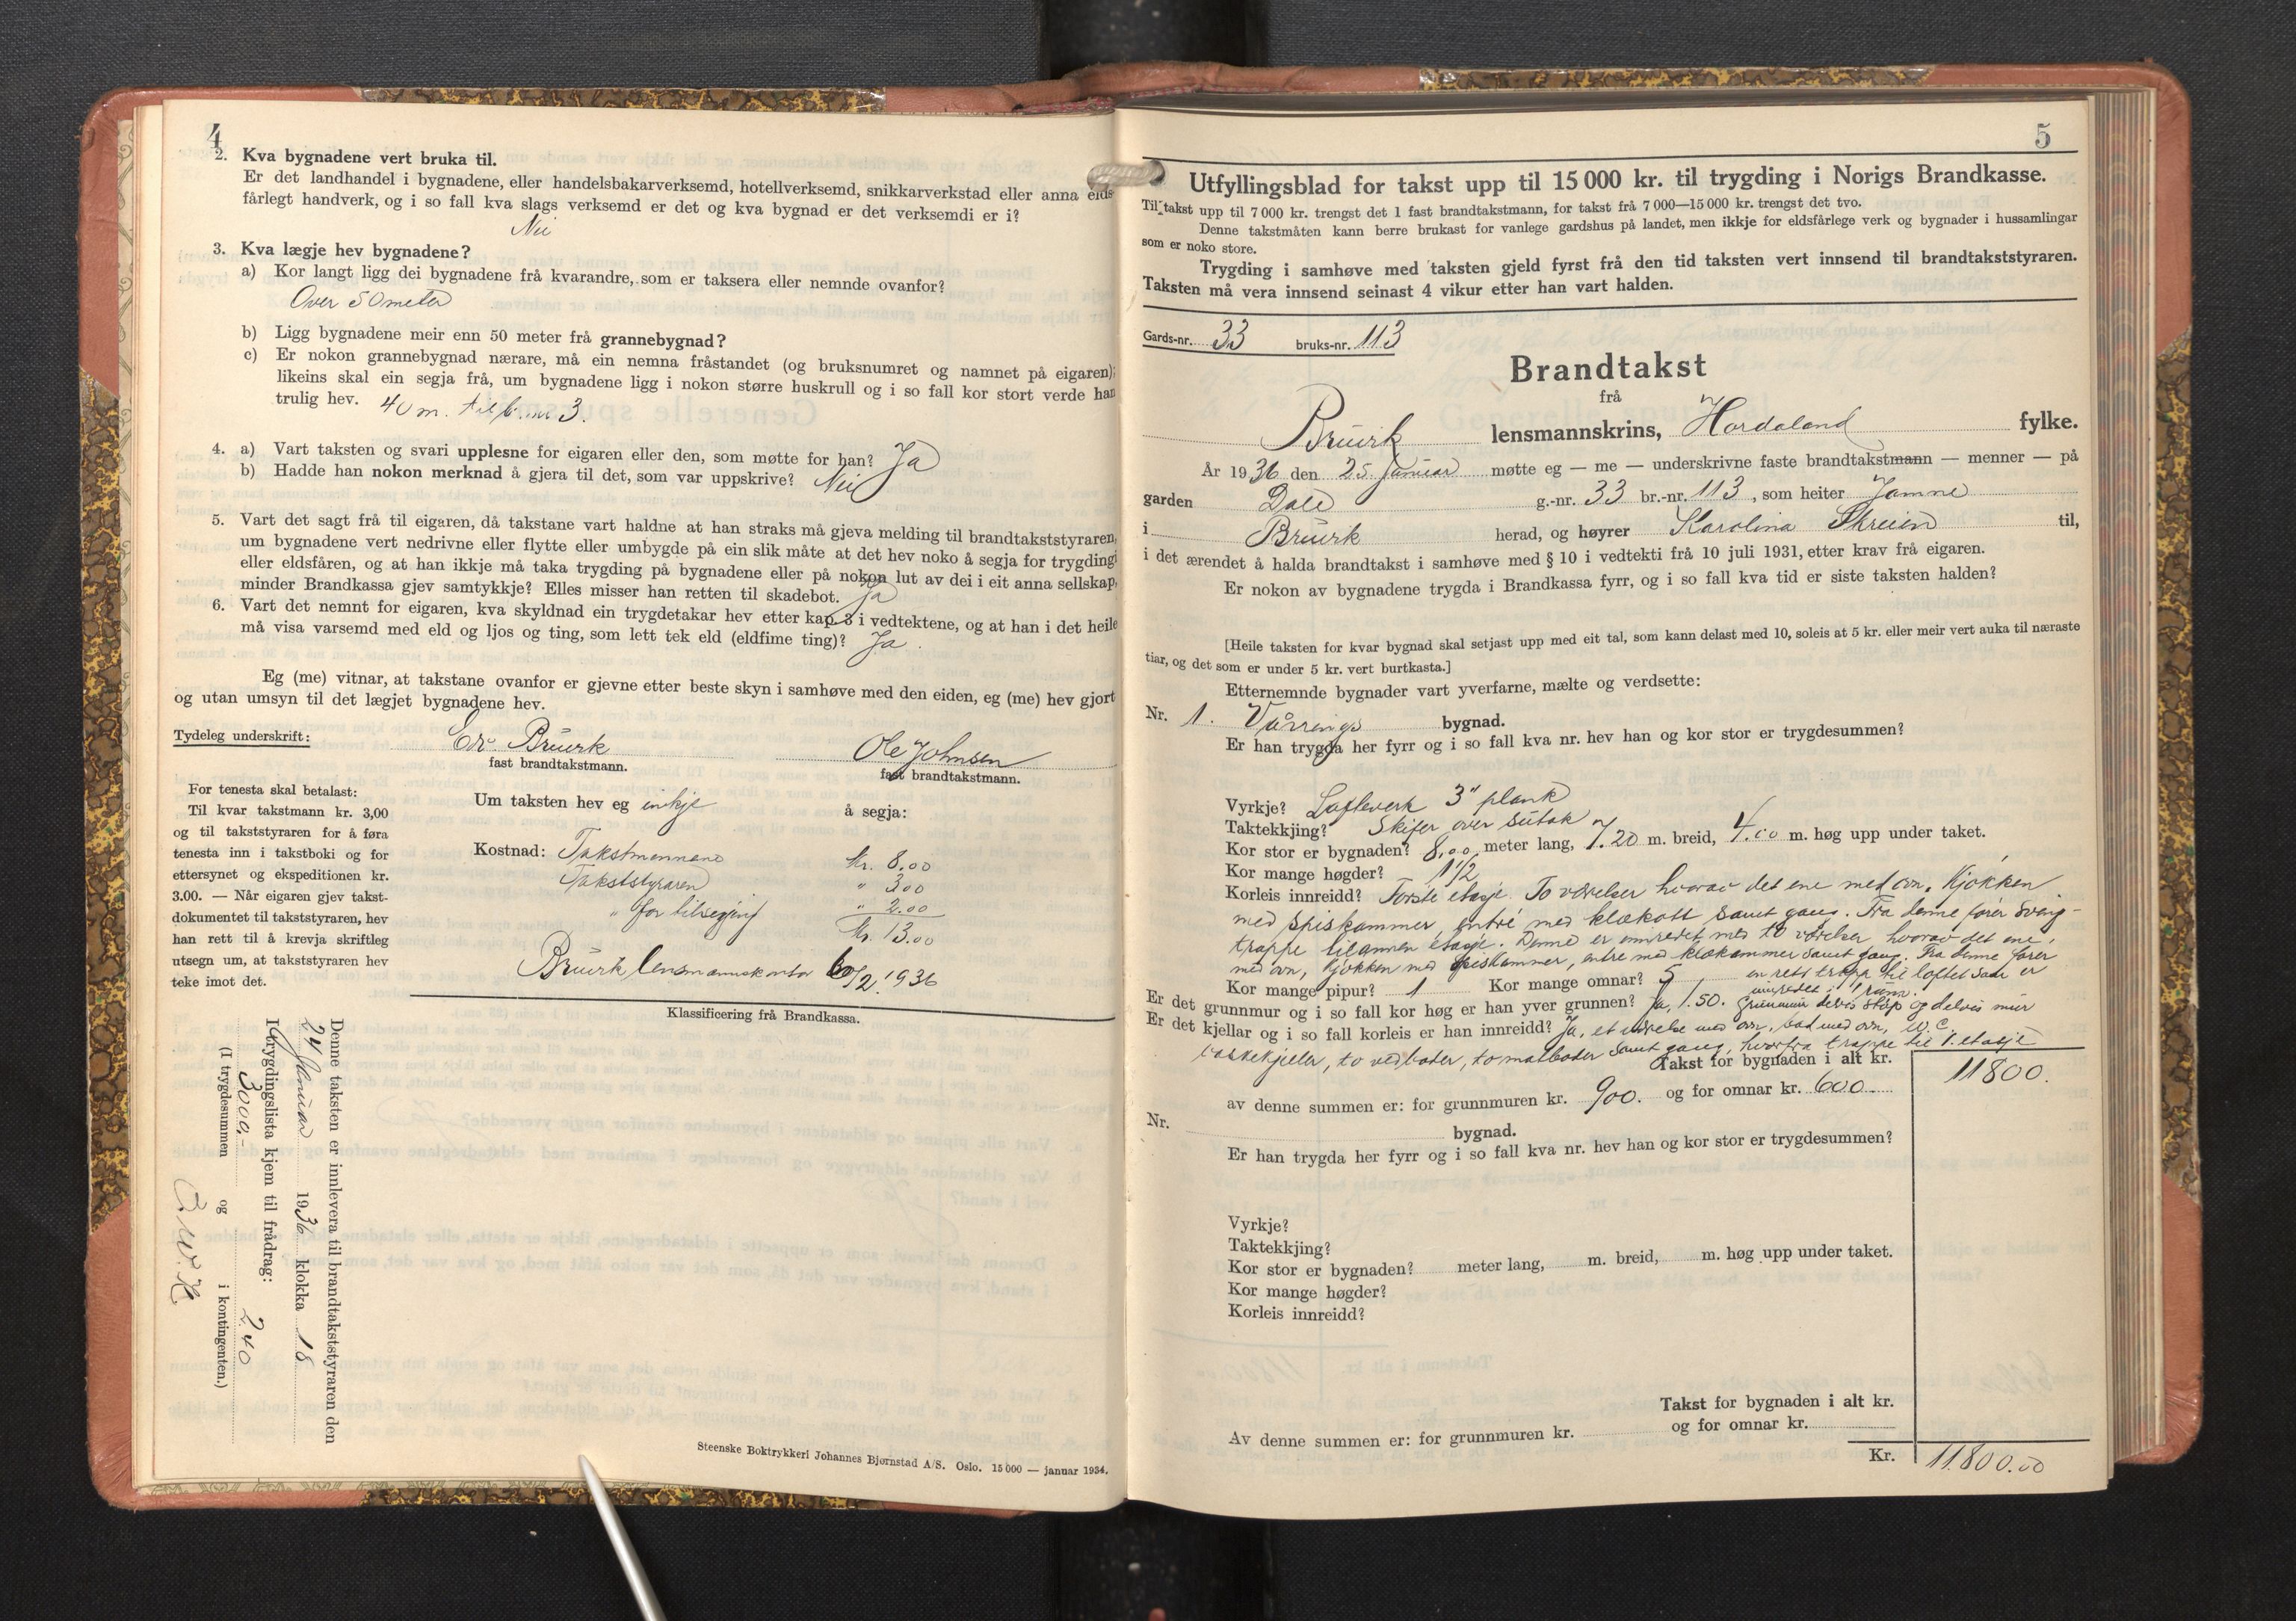 4
2. Kva bygnadene vert bruka til.
Er det landhandel i bygnadene, eller handelsbakarverksemd, hotellverksemd, snikkarverkstad eller anna elds
fårlegt handverk, og i so fall kva slags verksemd er det og kva bygnad er det verksemdi er i?
Nei
3. Kva lægje hev bygnadene?
a) Kor langt ligg dei bygnadene frå kvarandre, som er taksera eller nemnde ovanfor?
Over 50 meter
b) Ligg bygnadene meir enn 50 meter frå grannebygnad?
c) Er nokon grannebygnad nærare, må ein nemna fråstandet (og bruksnumret og namnet på eigaren);
likeins skal ein segja frå, um bygnadene ligg i nokon større huskrull og i so fall kor stort verde han
trulig hev. 40 m. til b.nr 3.
4. a) Vart taksten og svari upplesne for eigaren eller den, som møtte for han? Ja
b) Hadde han nokon merknad å gjera til det, som var uppskrive? Nei
5. Vart det sagt frå til eigaren, då takstane vart haldne at han straks må gjeva melding til brandtakststyraren,
um bygnadene vert nedrivne eller flytte eller umbygde på ein slik måte at det hev noko å segja for trygdingi
eller eldsfåren, og at han ikkje må taka trygding på bygnadene eller på nokon lut av dei i eit anna sellskap,
minder Brandkassa gjev samtykkje? Elles misser han retten til skadebot. Ja
6. Vart det nemnt for eigaren, kva skyldnad ein trygdetakar hev etter kap. 3 i vedtektene, og at han i det heile
må visa varsemd med eld og ljos og ting, som lett tek eld (eldfime ting)? Ja.
Eg (me) vitnar, at takstane ovanfor er gjevne etter beste skyn i samhøve med den eiden, eg (me) hev gjort
og utan umsyn til det lægjet bygnadene hev.
Tydeleg underskrift: Edv. Bruvik Ole Johnsen
fast brandtakstmann. fast brandtakstmann.
For tenesta skal betalast:
Til kvar takstmann kr. 3,00
og til takststyraren for å føra
tenesta inn i takstboki og for
ettersynet og ekspeditionen kr.
3.00. — Når eigaren gjev takst-
dokumentet til takststyraren, hev
han rett til å krevja skriftleg
utsegn um, at takststyraren hev
teke imot det.
Um taksten hev eg inkje å segja:
Kostnad: Takstmennene kr. 8.00
Takststyraren " 3.00
" for tilsegjing " 2.00
kr. 13.00
Bruvik lensmannskontor /2 1936
Klassificering frå Brandkassa.
Denne taksten er innlevera til brandtakststyraren den
24 Januar 1936 klokka 18
I trygdingslista kjem til frådrag:
3000.- 240
(I trygdesummen og i kontingenten.)
O.W.H
Steenske Boktrykkeri Johannes Bjørnstad A/S. Oslo. 15 000 — januar 1934.
5
Utfyllingsblad for takst upp til 15 000 kr. til trygding i Norigs Brandkasse.
Til takst upp til 7 000 kr. trengst det 1 fast brandtakstmann, for takst frå 7 000—15 000 kr. trengst det tvo.
Denne takstmåten kann berre brukast for vanlege gardshus på landet, men ikkje for eldsfårlege verk og bygnader i hussamlingar
som er noko store.
Trygding i samhøve med taksten gjeld fyrst frå den tid taksten vert innsend til brandtakststyraren.
Taksten må vera innsend seinast 4 vikur etter han vart halden.
Gards-nr. 33 bruks-nr. 113
Brandtakst
frå
Bruvik lensmannskrins, Hordaland fylke.
År 1936 den 25. Januar møtte eg — me — underskrivne faste brandtakstmann — menner — på
garden Dale g.-nr. 33 br.-nr. 113, som heiter Jamne
i Bruvik herad, og høyrer Karolina Skreien til,
i det ærendet å halda brandtakst i samhøve med § 10 i vedtekti frå 10 juli 1931, etter krav frå eigaren.
Er nokon av bygnadene trygda i Brandkassa fyrr, og i so fall kva tid er siste taksten halden?
[Heile taksten for kvar bygnad skal setjast upp med eit tal, som kann delast med 10, soleis at 5 kr. eller meir vert auka til næraste
tiar, og det som er under 5 kr. vert burtkasta.]
Etternemnde bygnader vart yverfarne, mælte og verdsette:
Nr. 1. Vånings bygnad.
Er han trygda her fyrr og i so fall kva nr. hev han og kor stor er trygdesummen?
Vyrkje? Lafteverk 3" plank
Taktekkjing? Skifer over sutak
Kor stor er bygnaden? 8,00 meter lang, 7.20 m. breid, 4.00 m. høg upp under taket.
Kor mange høgder? 1 1/2
Korleis innreidd? Første etasje. To værelser hvorav det ene med ovn. Kjøkken
med spiskammer, entré med klækott samt gang. Fra denne fører sving-
trappe til annen etasje. Denne er innredet med to værelser hvorav det ene
med ovn, kjøkken med spiskammer, entre med klækammer samt gang. Fra denne fører
en rett trapp til loftet som er
innredet i 1 rum.
Kor mange pipur? 1 Kor mange omnar? 5
Er det grunnmur og i so fall kor høg er han yver grunnen? Ja, 1.50. Grunnmur delvis støp og delvis mur
Er det kjellar og i so fall korleis er han innreidd? Ja, et værelse med ovn, bad med ovn, W.C.
vaskekjeller, to vedboder, to matboder samt gang, hvorfra trappe til 1. etasje
Takst for bygnaden i alt kr. 11800.
av denne summen er: for grunnmuren kr. 900. og for omnar kr. 600.
Nr. bygnad.
Er han trygda her fyrr og i so fall kva nr. hev han og kor stor er trygdesummen?
Vyrkje?
Taktekkjing?
Kor stor er bygnaden? meter lang, m. breid, m. høg upp under taket.
Kor mange høgder?
Korleis innreidd?
Takst for bygnaden i alt kr.
Av denne summen er: for grunnmuren kr. og for omnar kr.
Kr. 11.800.00